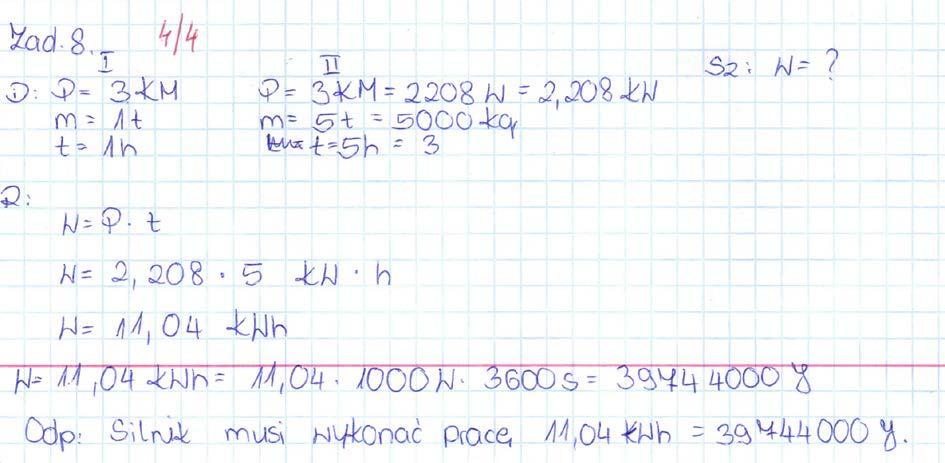 Zad. 8. 4/4
I II Sz: W = ?
D: P = 3 KM P = 3 KM = 2208 W = 2,208 kW
m = 1t m = 5t = 5000 kg
t = 1h t = 5h = 3
R:
W = P · t
W = 2,208 · 5 kW · h
W = 11,04 kWh
W = 11,04 kWh = 11,04 · 1000 W · 3600 s = 39744000 J
Odp: Silnik musi wykonać pracę 11,04 kWh = 39744000 J.